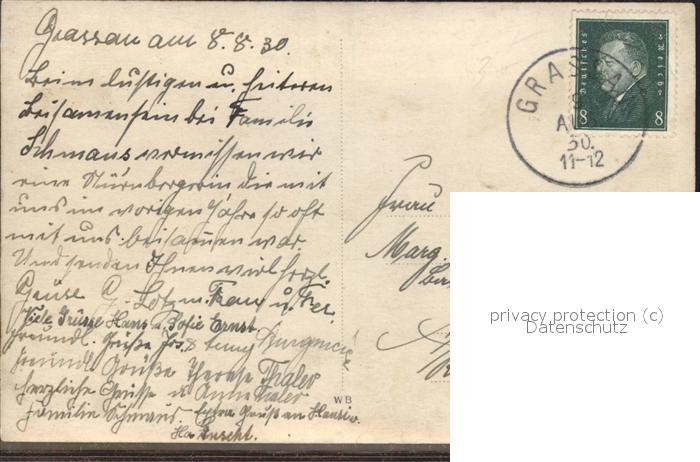 Grassau am 8.8.30.
Beim lustigen u. heiteren
Beisamensein bei Familie
Schmaus vermissen wir
eine Nürnbergerin die mit
uns im vorigen Jahre so oft
mit uns beisamen war.
Und senden Ihnen viel herzl.
Grüse G. Lotz m. Frau u.
Viele Grüsse Hans u. Sofie Ernst
Freundl. Grüße Jos. &
Freundl. Grüße Therese Thaler
herzliche Grüsse u Anna Thaler
Familie Schmaus. Extra Gruß an Hansi v.
Deutsches Reich
8 8
GRASSAU
8
AUG
30.
11-12
Frau
Marg.
WB
privacy protection (c)
Datenschutz